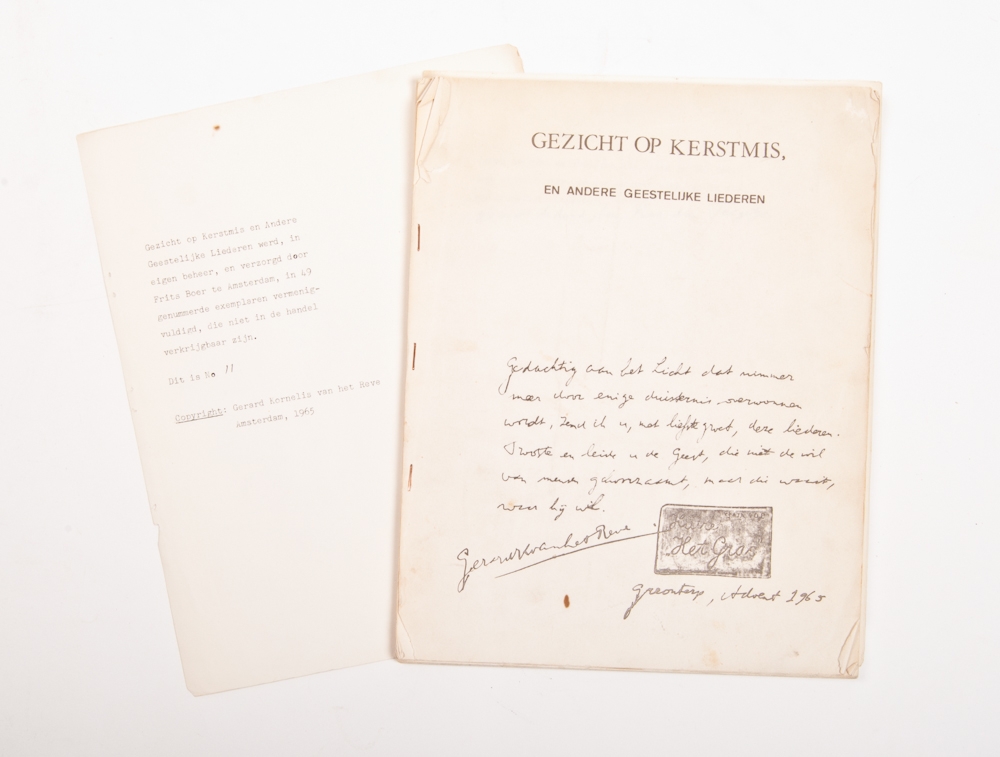 Gezicht op Kerstmis en Andere
Geestelijke Liederen werd, in
eigen beheer, en verzorgd door
Frits Boer te Amsterdam, in 49
genummerde exemplaren vermenig-
vuldigd, die niet in de handel
verkrijgbaar zijn.
Dit is No 11
Copyright: Gerard Kornelis van het Reve
Amsterdam, 1965
GEZICHT OP KERSTMIS,
EN ANDERE GEESTELIJKE LIEDEREN
Gedachtig aan het Licht dat nimmer
meer door enige duisternis overwonnen
wordt, zend ik u, met liefste groet, deze liederen.
Trooste en leide u de Geest, die niet de wil
van mensen gehoorzaamt, maar die waait,
waar hij wil.
Gerard Kvan het Reve.
Huize
Het Gras
Greonterp, Advent 1965